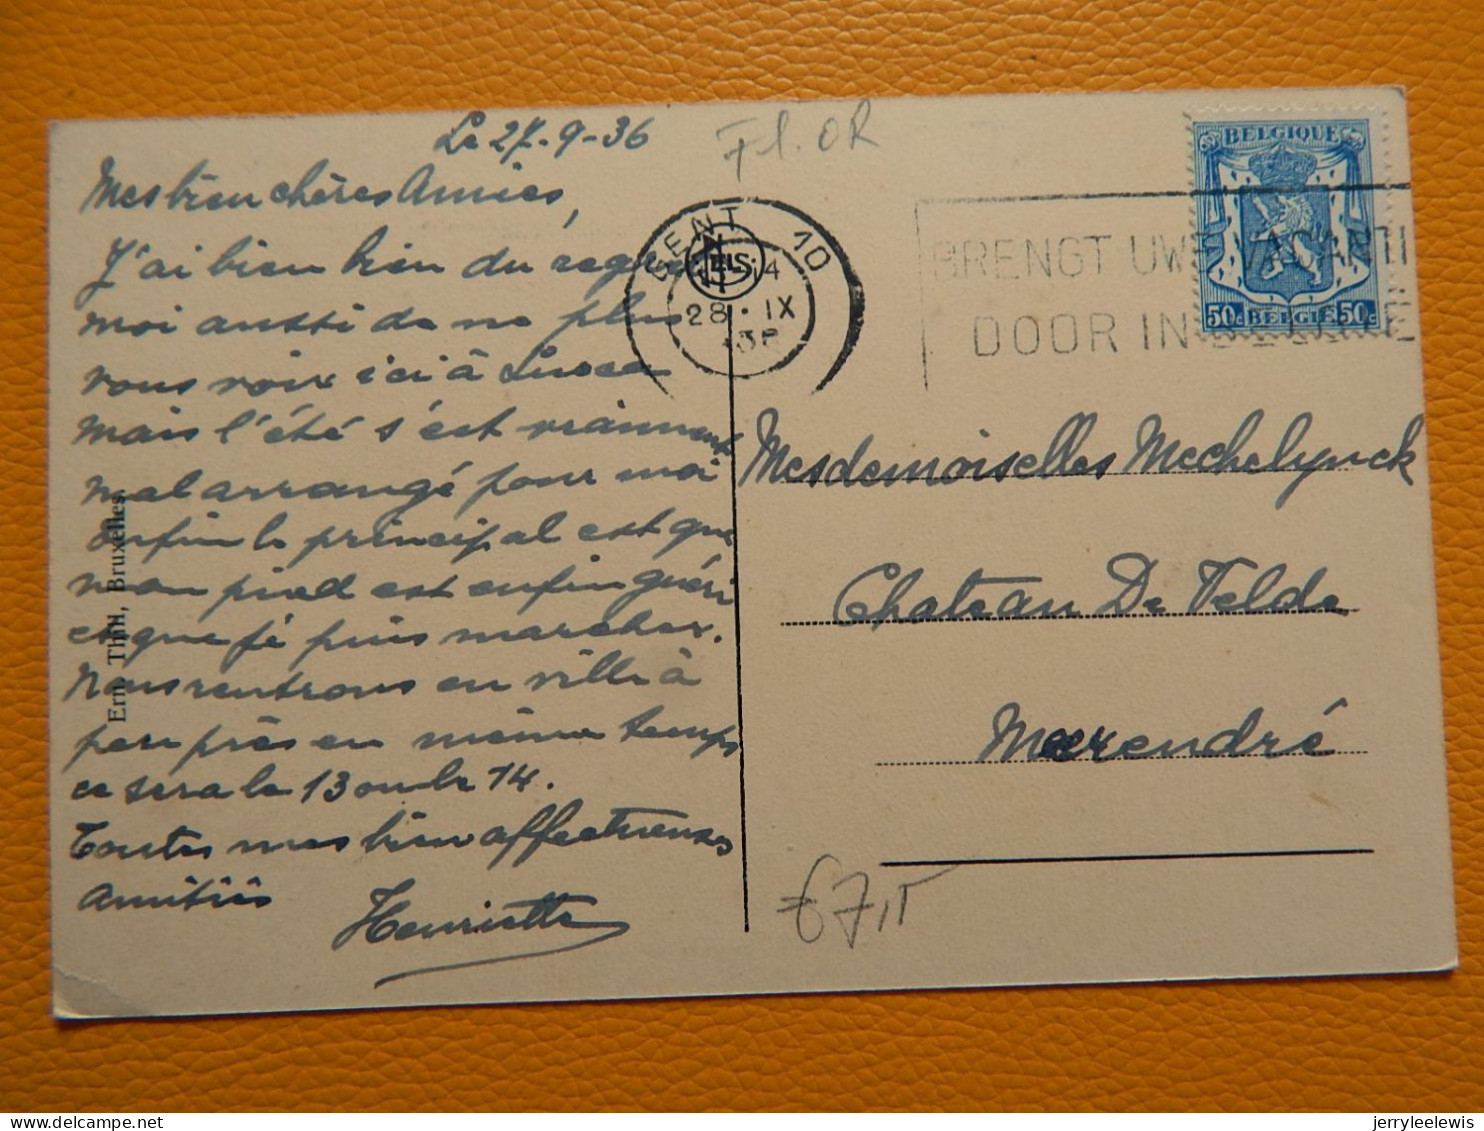 Le 27-9-36
Fl. OR
Mes bien chères Amies,
J'ai bien bien du regret
moi aussi de ne plus
vous voir ici à
mais l'été s'est vraiment
mal arrangé pour moi
enfin le principal est que
mon pied est enfin guéri
et que je puis marcher.
Nous rentrons en ville à
peu près en même temps
ce sera le 13 ou le 14.
Toutes mes bien affectueuses
amitiés
Henriette
Ern. Thill, Bruxelles.
NELS
GENT 10
14
28 · IX
36
BRENGT UWE VACANTI
DOOR IN
BELGIQUE
50c BELGIË 50c
Mesdemoiselles Mechelynck
Chateau De Velde
Merendré
67,5
jerryleelewis